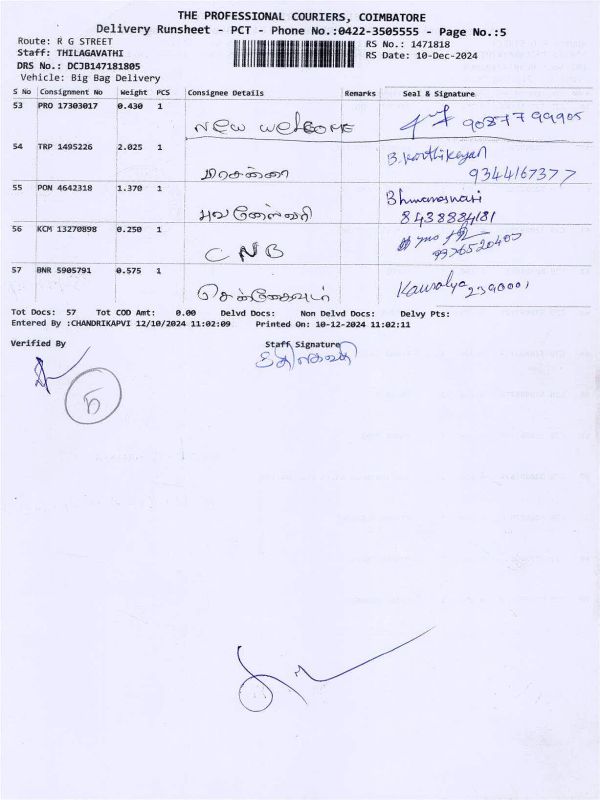 THE PROFESSIONAL COURIERS, COIMBATORE
Delivery Runsheet - PCT - Phone No.:0422-3505555 - Page No.:5
Route: R G STREET
RS No.: 1471818
Staff: THILAGAVATHI
RS Date: 10-Dec-2024
DRS No.: DCJB147181805
Vehicle: Big Bag Delivery
S No Consignment No Weight PCS Consignee Details Remarks Seal & Signature
53 PRO 17303017 0.430 1
New Welcome 9087799905
54 TRP 1495226 2.025 1
B. Karthikeyan
9344167377
55 PON 4642318 1.370 1
புவனேஸ்வரி
8438884181
56 KCM 13270898 0.250 1
CNB
57 BNR 5905791 0.575 1
Kausalya
Tot Docs: 57 Tot COD Amt: 0.00 Delvd Docs: Non Delvd Docs: Delvy Pts:
Entered By :CHANDRIKAPVI 12/10/2024 11:02:09 Printed On: 10-12-2024 11:02:11
Verified By Staff Signature
5